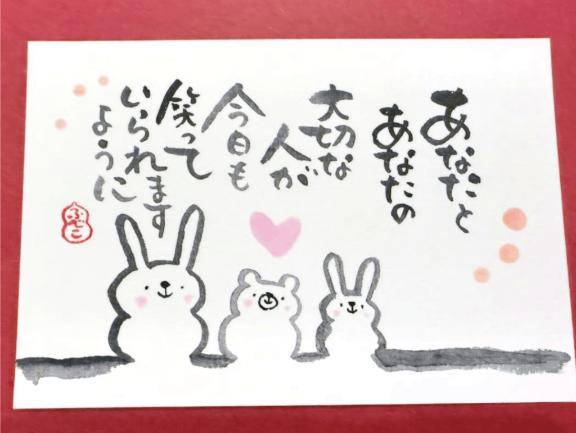 あなたと
あなたの
大切な
人が
今日も
笑って
いられます
ように